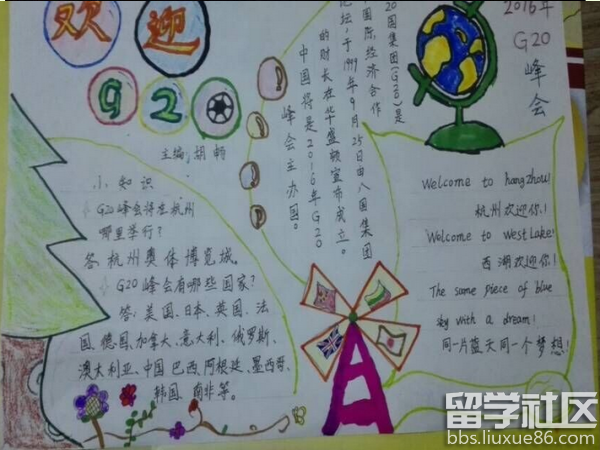 欢迎
G20
主编:胡畅
小知识
G20峰会将在杭州
哪里举行?
答:杭州奥体博览城。
G20峰会有哪些国家?
答:美国、日本、英国、法
国、德国、加拿大、意大利、俄罗斯、
澳大利亚、中国、巴西、阿根廷、墨西哥、
韩国、南非等。
20国集团(G20)是
国际经济合作
论坛,于1999年9月25日由八国集团
的财长在华盛顿宣布成立。
中国将是2016年G20
峰会主办国。
2016年
G20
峰会
Welcome to hangzhou!
杭州欢迎你!
Welcome to West Lake!
西湖欢迎你!
The same piece of blue
sky with a dream!
同一片蓝天同一个梦想!
留学社区
bbs.liuxue86.com